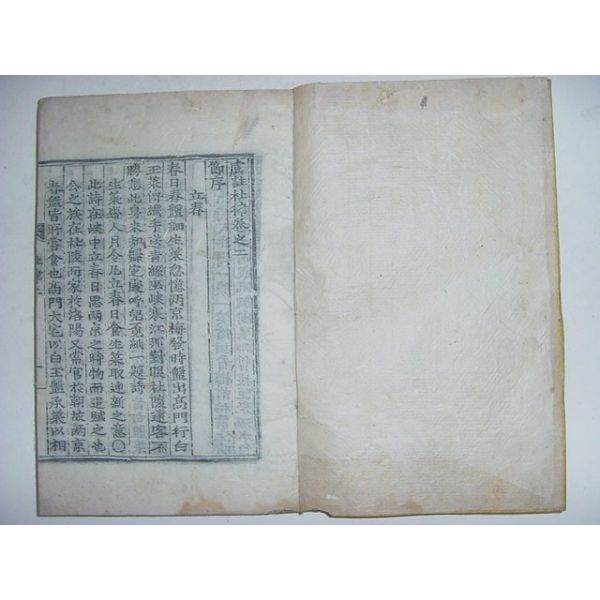 虞註杜律卷之二
節序
立春
春日春盤細生菜忽憶兩京梅發時盤出高門行白
玉菜傳纖手送青絲巫峽寒江那對眼杜陵遠客不
勝悲此身未知歸定處呼兒覓紙一題詩
生菜齊人月令凡立春日食生菜取迎新之意〇
此詩在峽中立春日思兩京之時物而遣賦之也
公之族在杜陵而家於洛陽又常官於朝故兩京
春盤皆所嘗食也高門大宅以白玉盤承菜以相